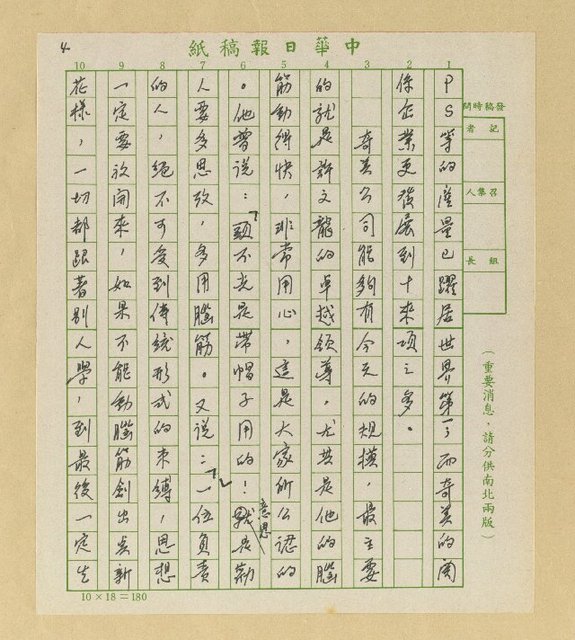 4
中華日報稿紙
1 2 3 4 5 6 7 8 9 10
ＰＳ等的產量已躍居世界第一；而奇美的關
係企業更發展到十來項之多。
奇美公司能夠有今天的規模，最主要
的就是許文龍的卓越領導，尤其是他的腦
筋動得快，非常用心，這是大家所公認的
。他曾說：「頭不光是帶帽子用的！」意思是勸
人要多思考，多用腦筋。又說：「一位負責
的人，絕不可受到傳統形式的束縛，思想
一定要放開來，如果不能動腦筋創出美新
花樣，一切都跟著別人學，到最後一定失
發稿時間
記者
召集人
組長
（重要消息，請分供南北兩版）
10×18＝180